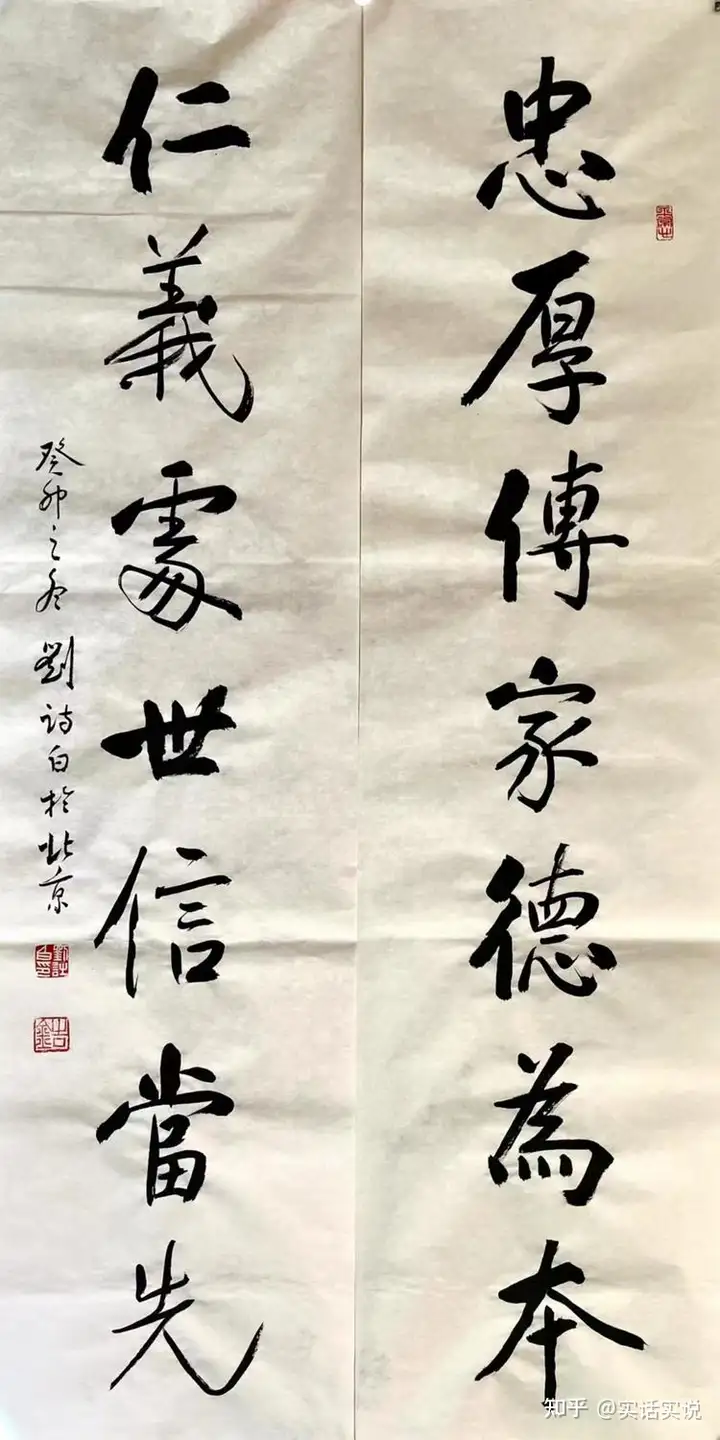 忠厚傳家德為本
仁義處世信當先
癸卯之冬劉诗白於北京
知乎 @实话实说